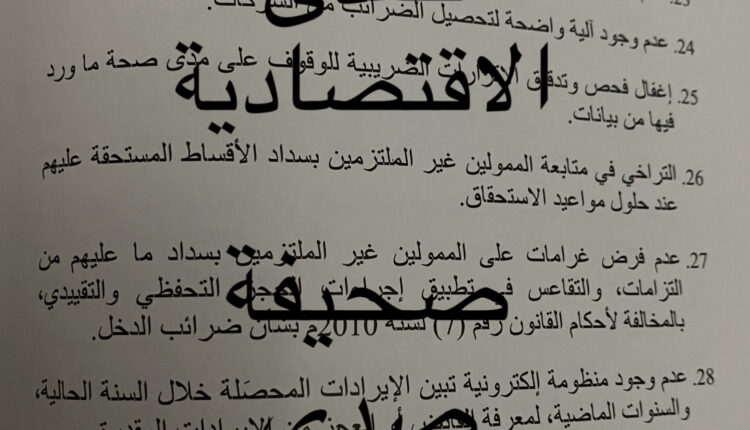 24. عدم وجود آلية واضحة لتحصيل الضرائب من الشركات.
25. إغفال فحص وتدقيق الإقرارات الضريبية للوقوف على مدى صحة ما ورد
فيها من بيانات.
الاقتصادية
26. التراخي في متابعة الممولين غير الملتزمين بسداد الأقساط المستحقة عليهم
عند حلول مواعيد الاستحقاق.
27. عدم فرض غرامات على الممولين غير الملتزمين بسداد ما عليهم من
التزامات، والتقاعس في تطبيق إجراءات الحجز التحفظي والتقييدي،
صحيفة
بالمخالفة لأحكام القانون رقم (7) لسنة 2010م بشأن ضرائب الدخل.
28. عدم وجود منظومة إلكترونية تبين الإيرادات المحصَلة خلال السنة الحالية،
والسنوات الماضية، لمعرفة الفائض أو العجز من الإيرادات